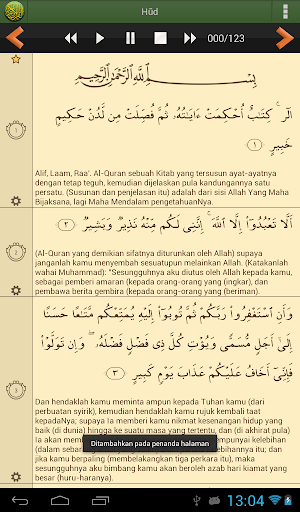 Hūd
000/123
بِسْمِ ٱللَّهِ ٱلرَّحْمَٰنِ ٱلرَّحِيمِ
الٓر ۚ كِتَٰبٌ أُحْكِمَتْ ءَايَٰتُهُۥ ثُمَّ فُصِّلَتْ مِن لَّدُنْ حَكِيمٍ
خَبِيرٍ ﴿١﴾
Alif, Laam, Raa'. Al-Quran sebuah Kitab yang tersusun ayat-ayatnya
dengan tetap teguh, kemudian dijelaskan pula kandungannya satu
persatu. (Susunan dan penjelasan itu) adalah dari sisi Allah Yang Maha
Bijaksana, lagi Maha Mendalam pengetahuanNya.
أَلَّا تَعْبُدُوٓا۟ إِلَّا ٱللَّهَ ۚ إِنَّنِى لَكُم مِّنْهُ نَذِيرٌ وَبَشِيرٌ ﴿٢﴾
(Al-Quran yang demikian sifatnya diturunkan oleh Allah) supaya
janganlah kamu menyembah sesuatupun melainkan Allah. (Katakanlah
wahai Muhammad): "Sesungguhnya aku diutus oleh Allah kepada kamu,
sebagai pemberi amaran (kepada orang-orang yang (ingkar), dan
pembawa berita gembira (kepada orang-orang yang (beriman).
وَأَنِ ٱسْتَغْفِرُوا۟ رَبَّكُمْ ثُمَّ تُوبُوٓا۟ إِلَيْهِ يُمَتِّعْكُم مَّتَٰعًا حَسَنًا
إِلَىٰٓ أَجَلٍ مُّسَمًّى وَيُؤْتِ كُلَّ ذِى فَضْلٍ فَضْلَهُۥ ۖ وَإِن تَوَلَّوْا۟
فَإِنِّىٓ أَخَافُ عَلَيْكُمْ عَذَابَ يَوْمٍ كَبِيرٍ ﴿٣﴾
Dan hendaklah kamu meminta ampun kepada Tuhan kamu (dari
perbuatan syirik), kemudian hendaklah kamu rujuk kembali taat
kepadaNya; supaya Ia memberi kamu nikmat kesenangan hidup yang
baik (di dunia) hingga ke suatu masa yang tertentu, dan (di akhirat pula)
Ia akan memb mempunyai kelebihan
Ditambahkan pada penanda halaman
(dalam sebara itu; dan jika
kamu berpaling (membelakangkan tiga perkara itu), maka
sesungguhnya aku bimbang kamu akan beroleh azab hari kiamat yang
besar (huru-haranya).
13:04